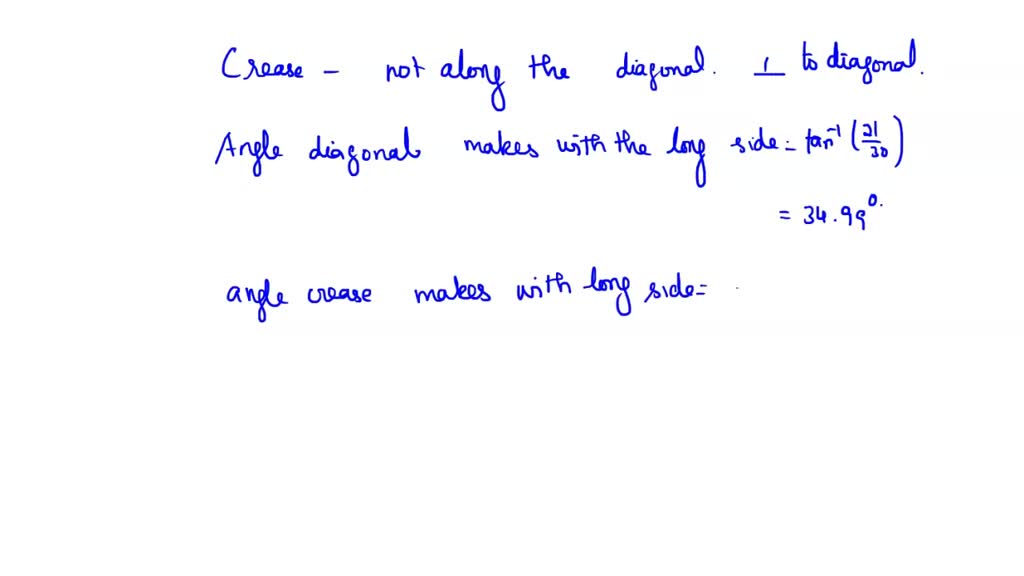 Crease - not along the diagonal. ⊥ to diagonal.
Angle diagonal makes with the long side = tan⁻¹ (21/30)
= 34.99°.
angle crease makes with long side =